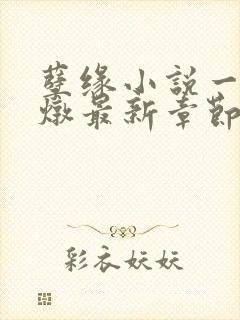 孽缘小说一
燉最新章節
彩衣妖妖